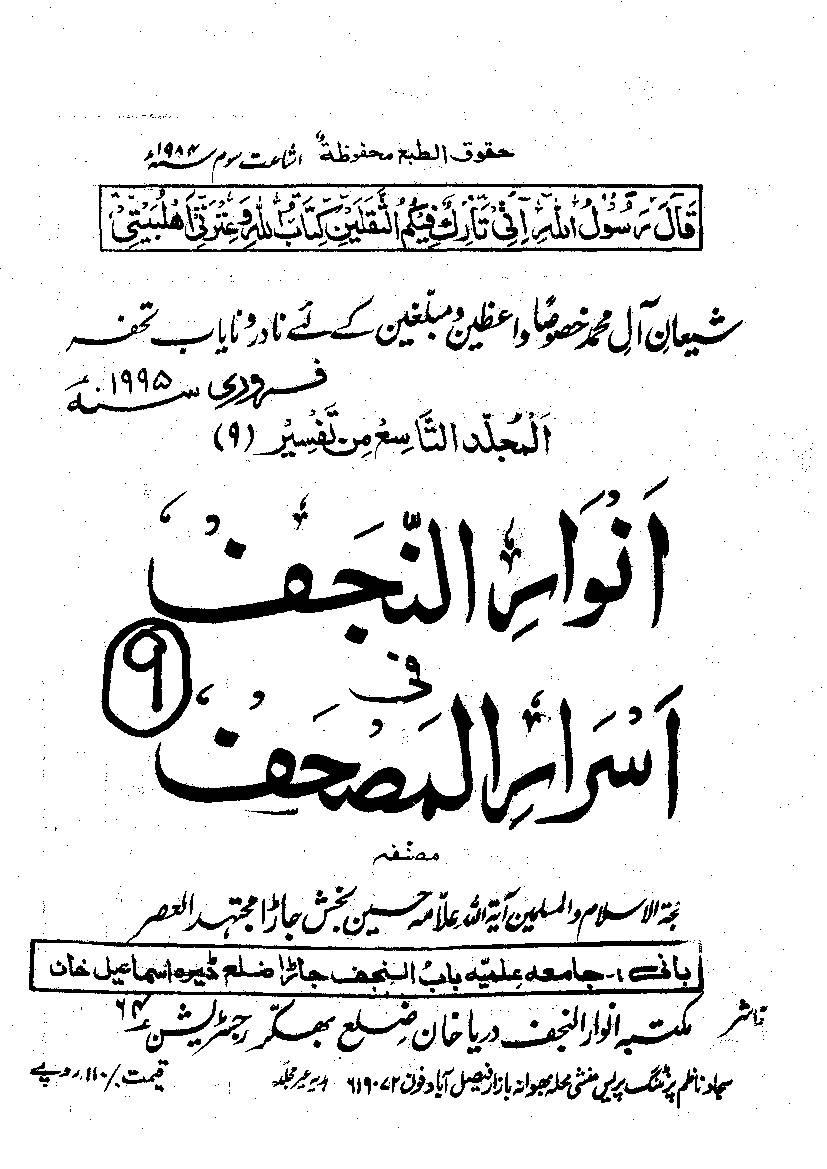 حقوق الطبع محفوظة اشاعت سوم سنہ ۱۹۸۴ء
قَالَ رَسُولُ اللهِ اِنِّیْ تَارِكٌ فِیْكُمُ الثَّقَلَیْنِ كِتَابُ اللهِ وَ عِتْرَتِیْ اَهْلُبَیْتِیْ
شیعانِ آلِ محمد خصوصًا واعظین و مبلّغین کے لئے نادر و نایاب تحفہ
فروری سنہ ۱۹۹۵ء
اَلْمُجَلّد التَّاسِعُ مِن تَفْسِیْر (۹)
اَنْوَارِ النَّجَفْ
فی
۹
اَسْرَارِ الْمَصْحَفْ
مصنّفہ
حجۃ الاسلام والمسلمین آیۃ اللہ علّامہ حسین بخش جاڑا مجتہد العصر
بانی:۔ جامعہ علمیّہ بابُ النجف جاڑا ضلع ڈیرہ اسماعیل خان
ناشر مکتبہ انوار النجف دریا خان ضلع بھکّر رجسٹریشن ۶۴
سجاد ناظم پرنٹنگ پریس منشی محلہ بھوانہ بازار فیصل آباد فون ۶۱۹۰۷۲ ہدیہ غیر مجلّد قیمت ۱۱۰/۔ روپے